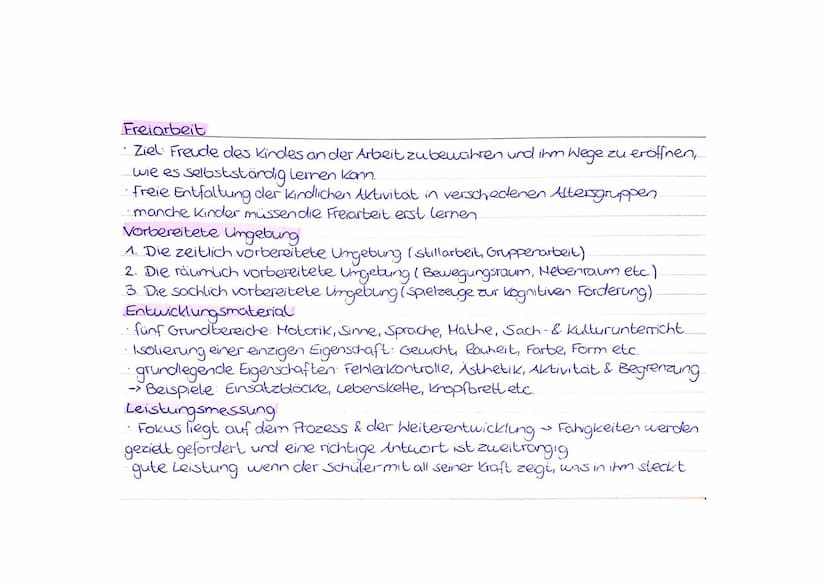 Freiarbeit
· Ziel: Freude des Kindes an der Arbeit zu bewahren und ihm Wege zu eröffnen,
wie es selbstständig lernen kann.
· freie Entfaltung der kindlichen Aktivität in verschiedenen Altersgruppen
· manche Kinder müssen die Freiarbeit erst lernen
Vorbereitete Umgebung
1. Die zeitlich vorbereitete Umgebung (Stillarbeit, Gruppenarbeit)
2. Die räumlich vorbereitete Umgebung (Bewegungsraum, Nebenraum etc.)
3. Die sachlich vorbereitete Umgebung (Spielzeuge zur kognitiven Förderung)
Entwicklungsmaterial
· fünf Grundbereiche: Motorik, Sinne, Sprache, Mathe, Sach- & Kulturunterricht
· Isolierung einer einzigen Eigenschaft: Gewicht, Rauheit, Farbe, Form etc.
· grundlegende Eigenschaften: Fehlerkontrolle, Ästhetik, Aktivität & Begrenzung
-> Beispiele: Einsatzblöcke, Lebenskette, Knopfbrett etc.
Leistungsmessung
· Fokus liegt auf dem Prozess & der Weiterentwicklung -> Fähigkeiten werden
gezielt gefördert und eine richtige Antwort ist zweitrangig
· gute Leistung wenn der Schüler mit all seiner Kraft zeigt, was in ihm steckt